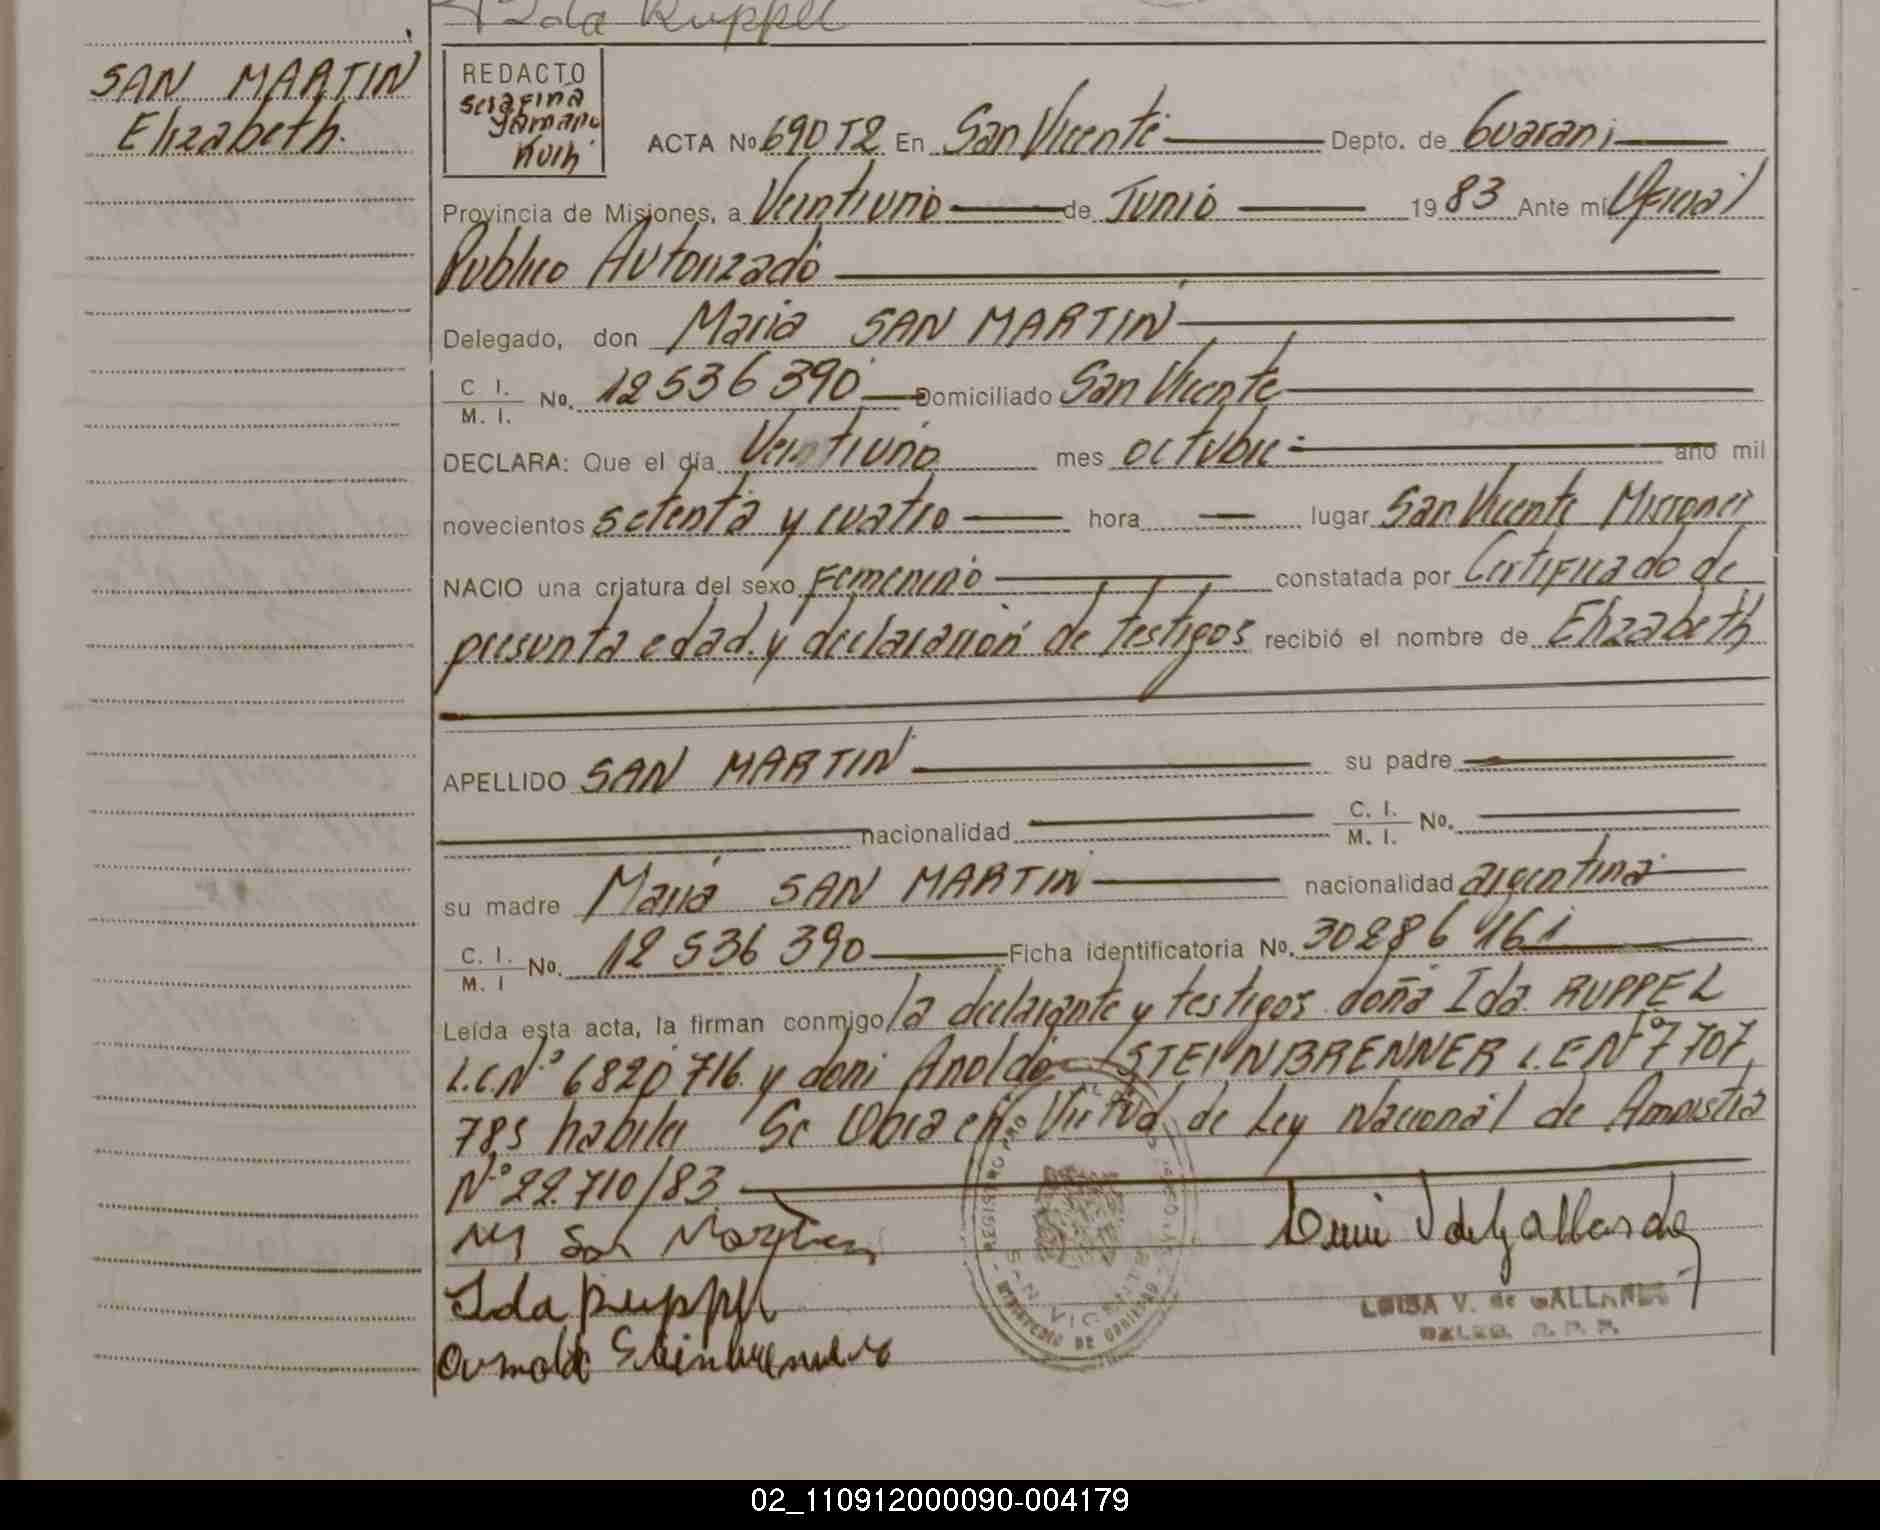 Ida Ruppel
SAN MARTIN
Elizabeth.
REDACTO
Serafina
Nuñ
ACTA No 690 T2 En San Vicente Depto. de Guarani
Provincia de Misiones, a Veintiuno de Junio 1983 Ante mi Oficial
Publico Autorizado
Delegado, don Maria SAN MARTIN
C. I. / M. I. No. 12 536 390 Domiciliado San Vicente
DECLARA: Que el día Veintiuno mes octubre año mil
novecientos setenta y cuatro hora lugar San Vicente Misiones
NACIO una criatura del sexo Femenino constatada por Certificado de
presunta edad y declaración de testigos recibió el nombre de Elizabeth
APELLIDO SAN MARTIN su padre
nacionalidad C. I. / M. I. No.
su madre Maria SAN MARTIN nacionalidad argentina
C. I. / M. I No. 12 536 390 Ficha identificatoria No. 30286 161
Leída esta acta, la firman conmigo la declarante y testigos doña Ida RUPPEL
L.C.Nº 6820716 y don Arnoldo STEINBRENNER L.E Nº 7707
785 habiles Se Obra en Virtud de Ley Nacional de Amnistia
Nº 22.710/83
M San Martin
Ida Ruppel
Steinbrenner
REGISTRO
SAN VICENTE
LUISA V. de GALLARDO